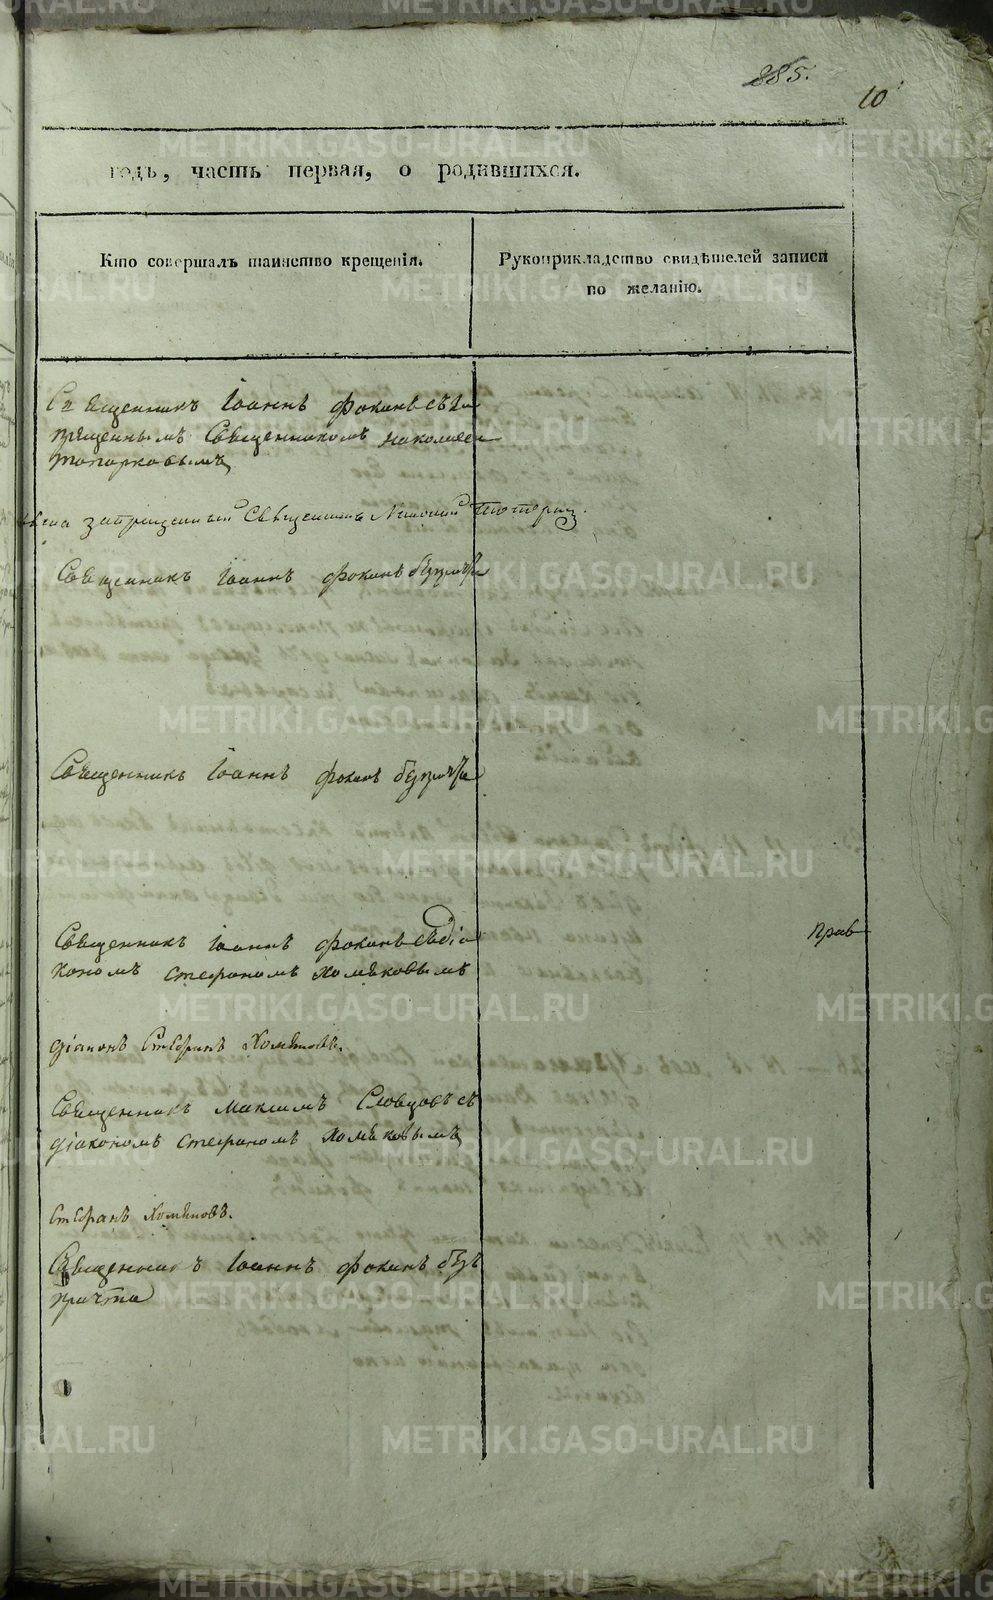 885.
10
годъ, часть первая, о родившихся.
Кто совершалъ таинство крещенія.
Рукоприкладство свидѣтелей записи
по желанію.
Священникъ Іоаннъ Фокинъ съ за
прещеннымъ Священникомъ Николаем
Топорковымъ
запрещенный Священникъ Николай
Священникъ Іоаннъ Фокинъ безъ причта
Священникъ Іоаннъ Фокинъ безъ причта
Священникъ Іоаннъ Фокинъ съ діа
кономъ Стефаномъ Хомяковымъ
прав
діаконъ Стефанъ Хомяковъ.
Священникъ Максимъ Словцовъ съ
діакономъ Стефаномъ Хомяковымъ
Стефанъ Хомяковъ.
Священникъ Іоаннъ Фокинъ безъ
причта
METRIKI.GASO-URAL.RU